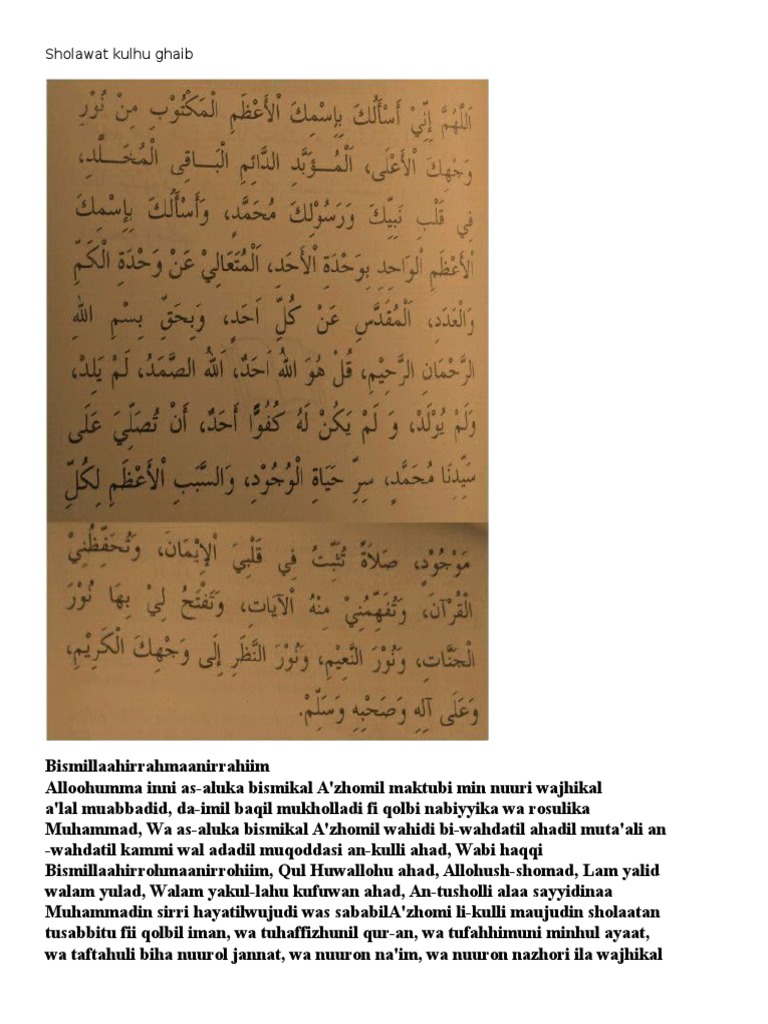 Sholawat kulhu ghaib
اَللّٰهُمَّ إِنِّيْ أَسْأَلُكَ بِاِسْمِكَ اْلأَعْظَمِ الْمَكْتُوْبِ مِنْ نُوْرِ
وَجْهِكَ اْلأَعْلَى، اَلْمُـــؤَبَّدِ الدَّائِمِ الْبَـــاقِى الْمُخَـــلَّدِ،
فِي قَلْبِ نَبِيِّكَ وَرَسُوْلِكَ مُحَمَّدٍ، وَأَسْأَلُكَ بِاِسْمِكَ
اْلأَعْظَمِ الْوَاحِدِ بِوَحْدَةِ اْلأَحَدِ، اَلْمُتَعَالِيْ عَنْ وَحْدَةِ الْكَمِّ
وَالْعَدَدِ، اَلْمُقَدَّسِ عَنْ كُلِّ اَحَدٍ، وَبِحَقِّ بِسْمِ اللهِ
الرَّحْمَانِ الرَّحِيْمِ، قُلْ هُوَ اللهُ اَحَدٌ، اَللهُ الصَّمَدُ، لَمْ يَلِدْ،
وَلَمْ يُوْلَدْ، وَ لَمْ يَكُنْ لَهُ كُفُوًا أَحَدٌ، أَنْ تُصَلِّيَ عَلَى
سَيِّدِنَا مُحَمَّدٍ، سِرِّ حَيَاةِ الْوُجُوْدِ، وَالسَّبَبِ اْلأَعْظَمِ لِكُلِّ
مَوْجُوْدٍ، صَلاَةً تُثَبِّتُ فِي قَلْبِيَ اْلإِيْمَانَ، وَتُحَفِّظُنِيْ
الْقُرْآنَ، وَتُفَهِّمُنِيْ مِنْهُ اْلآيَاتِ، وَتَفْتَحُ لِيْ بِهَا نُوْرَ
الْجَنَّاتِ، وَنُوْرَ النَّعِيْمِ، وَنُوْرَ النَّظَرِ إِلَى وَجْهِكَ الْكَرِيْمِ،
وَعَلَى آلِهِ وَصَحْبِهِ وَسَلِّمْ.
Bismillaahirrahmaanirrahiim
Alloohumma inni as-aluka bismikal A'zhomil maktubi min nuuri wajhikal
a'lal muabbadid, da-imil baqil mukholladi fi qolbi nabiyyika wa rosulika
Muhammad, Wa as-aluka bismikal A'zhomil wahidi bi-wahdatil ahadil muta'ali an
-wahdatil kammi wal adadil muqoddasi an-kulli ahad, Wabi haqqi
Bismillaahirrohmaanirrohiim, Qul Huwallohu ahad, Allohush-shomad, Lam yalid
walam yulad, Walam yakul-lahu kufuwan ahad, An-tusholli alaa sayyidinaa
Muhammadin sirri hayatilwujudi was sababilA'zhomi li-kulli maujudin sholaatan
tusabbitu fii qolbil iman, wa tuhaffizhunil qur-an, wa tufahhimuni minhul ayaat,
wa taftahuli biha nuurol jannat, wa nuuron na'im, wa nuuron nazhori ila wajhikal